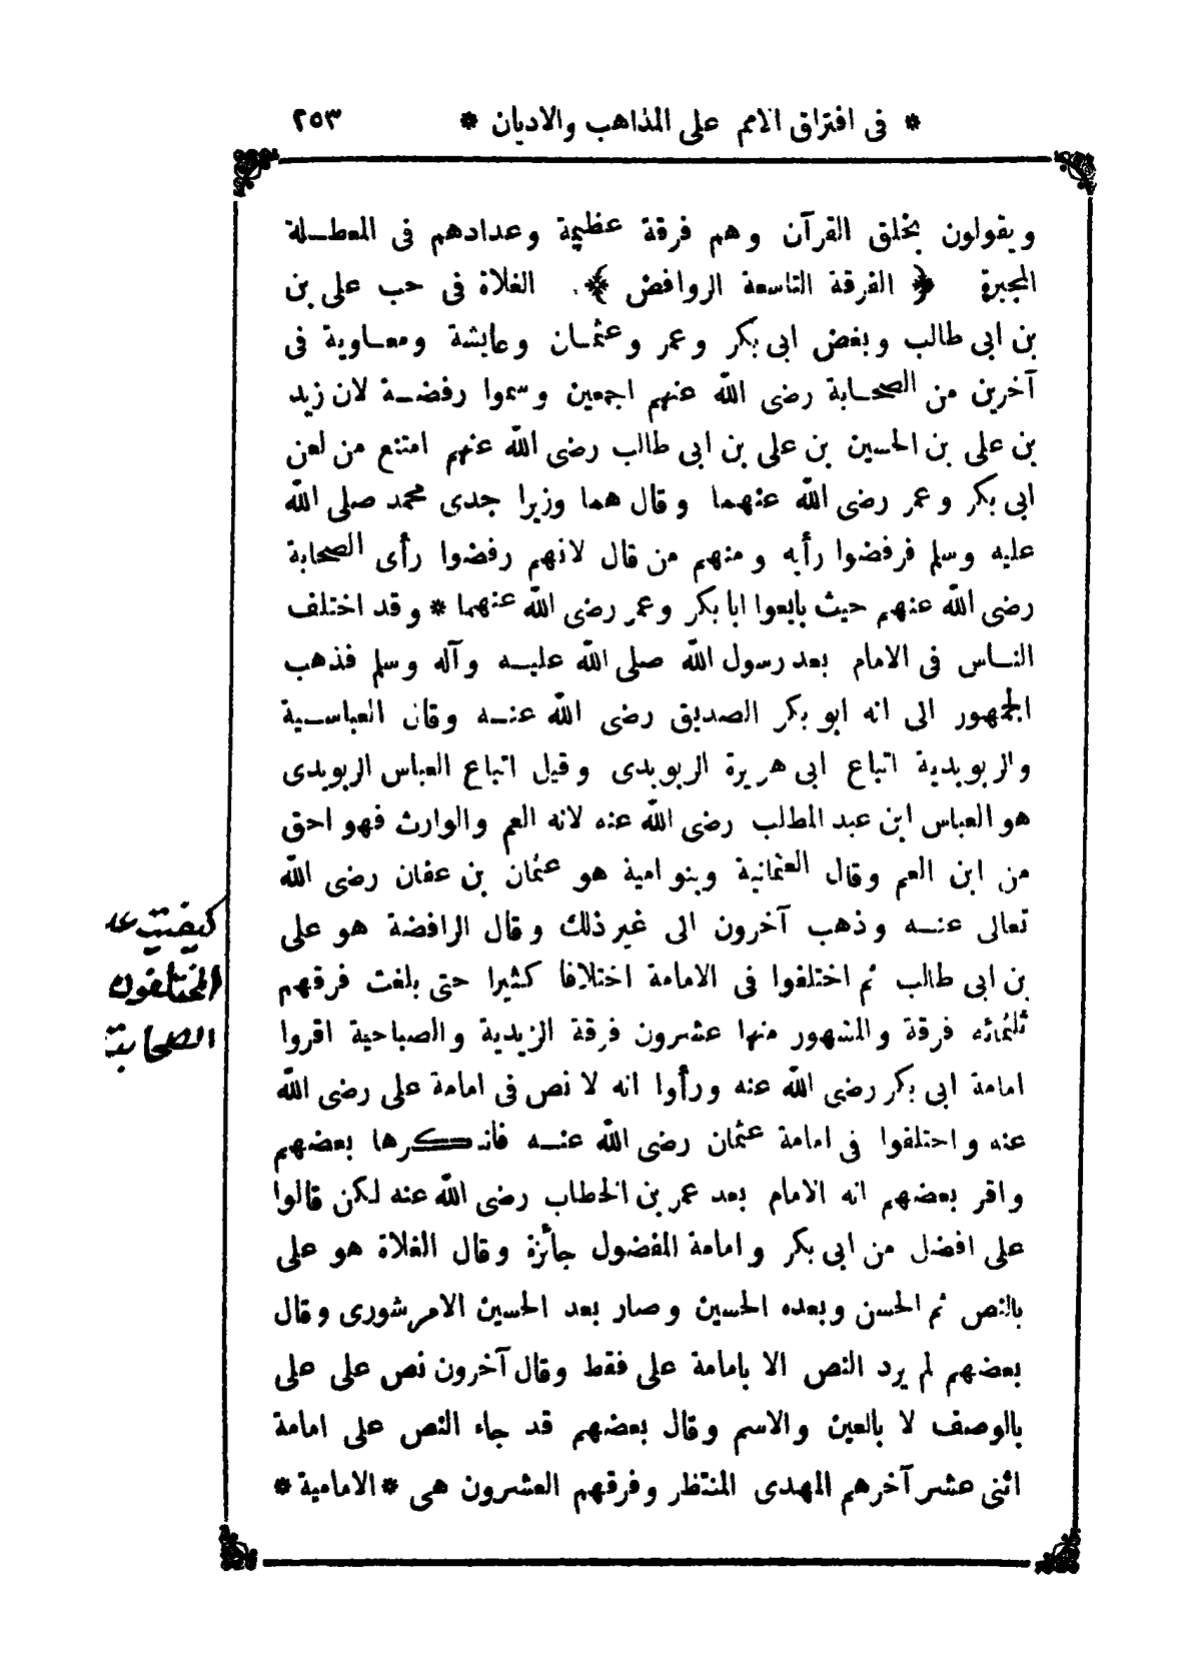 * فى افتراق الامم على المذاهب والاديان * ٢٥٣
ويقولون بخلق القرآن وهم فرقة عظيمة وعدادهم فى المعطلة
المجبرة ﴿ الفرقة التاسعة الروافض ﴾. الغلاة فى حب على بن
بن ابى طالب وبغض ابى بكر وعمر وعثمان وعايشة ومعاوية فى
آخرين من الصحابة رضى الله عنهم اجمعين وسموا رفضة لان زيد
بن على بن الحسين بن على بن ابى طالب رضى الله عنهم امتنع من لعن
ابى بكر وعمر رضى الله عنهما وقال هما وزيرا جدى محمد صلى الله
عليه وسلم فرفضوا رأيه ومنهم من قال لانهم رفضوا رأى الصحابة
رضى الله عنهم حيث بايعوا ابا بكر وعمر رضى الله عنهما * وقد اختلف
الناس فى الامام بعد رسول الله صلى الله عليه وآله وسلم فذهب
الجمهور الى انه ابو بكر الصديق رضى الله عنه وقال العباسية
والربوبدية اتباع ابى هريرة الربوبدى وقيل اتباع العباس الربوبدى
هو العباس ابن عبد المطلب رضى الله عنه لانه العم والوارث فهو احق
من ابن العم وقال العثمانية وبنو امية هو عثمان بن عفان رضى الله
تعالى عنه وذهب آخرون الى غير ذلك وقال الرافضة هو على
بن ابى طالب ثم اختلفوا فى الامامة اختلافا كثيرا حتى بلغت فرقهم
ثلثمائه فرقة والمشهور منها عشرون فرقة الزيدية والصباحية اقروا
امامة ابى بكر رضى الله عنه ورأوا انه لا نص فى امامة على رضى الله
عنه واختلفوا فى امامة عثمان رضى الله عنه فانكرها بعضهم
واقر بعضهم انه الامام بعد عمر بن الخطاب رضى الله عنه لكن قالوا
على افضل من ابى بكر وامامة المفضول جائزة وقال الغلاة هو على
بالنص ثم الحسن وبعده الحسين وصار بعد الحسين الامر شورى وقال
بعضهم لم يرد النص الا بامامة على فقط وقال آخرون نص على على
بالوصف لا بالعين والاسم وقال بعضهم قد جاء النص على امامة
اثنى عشر آخرهم المهدى المنتظر وفرقهم العشرون هى * الامامية *
المختلفون
الصحابة